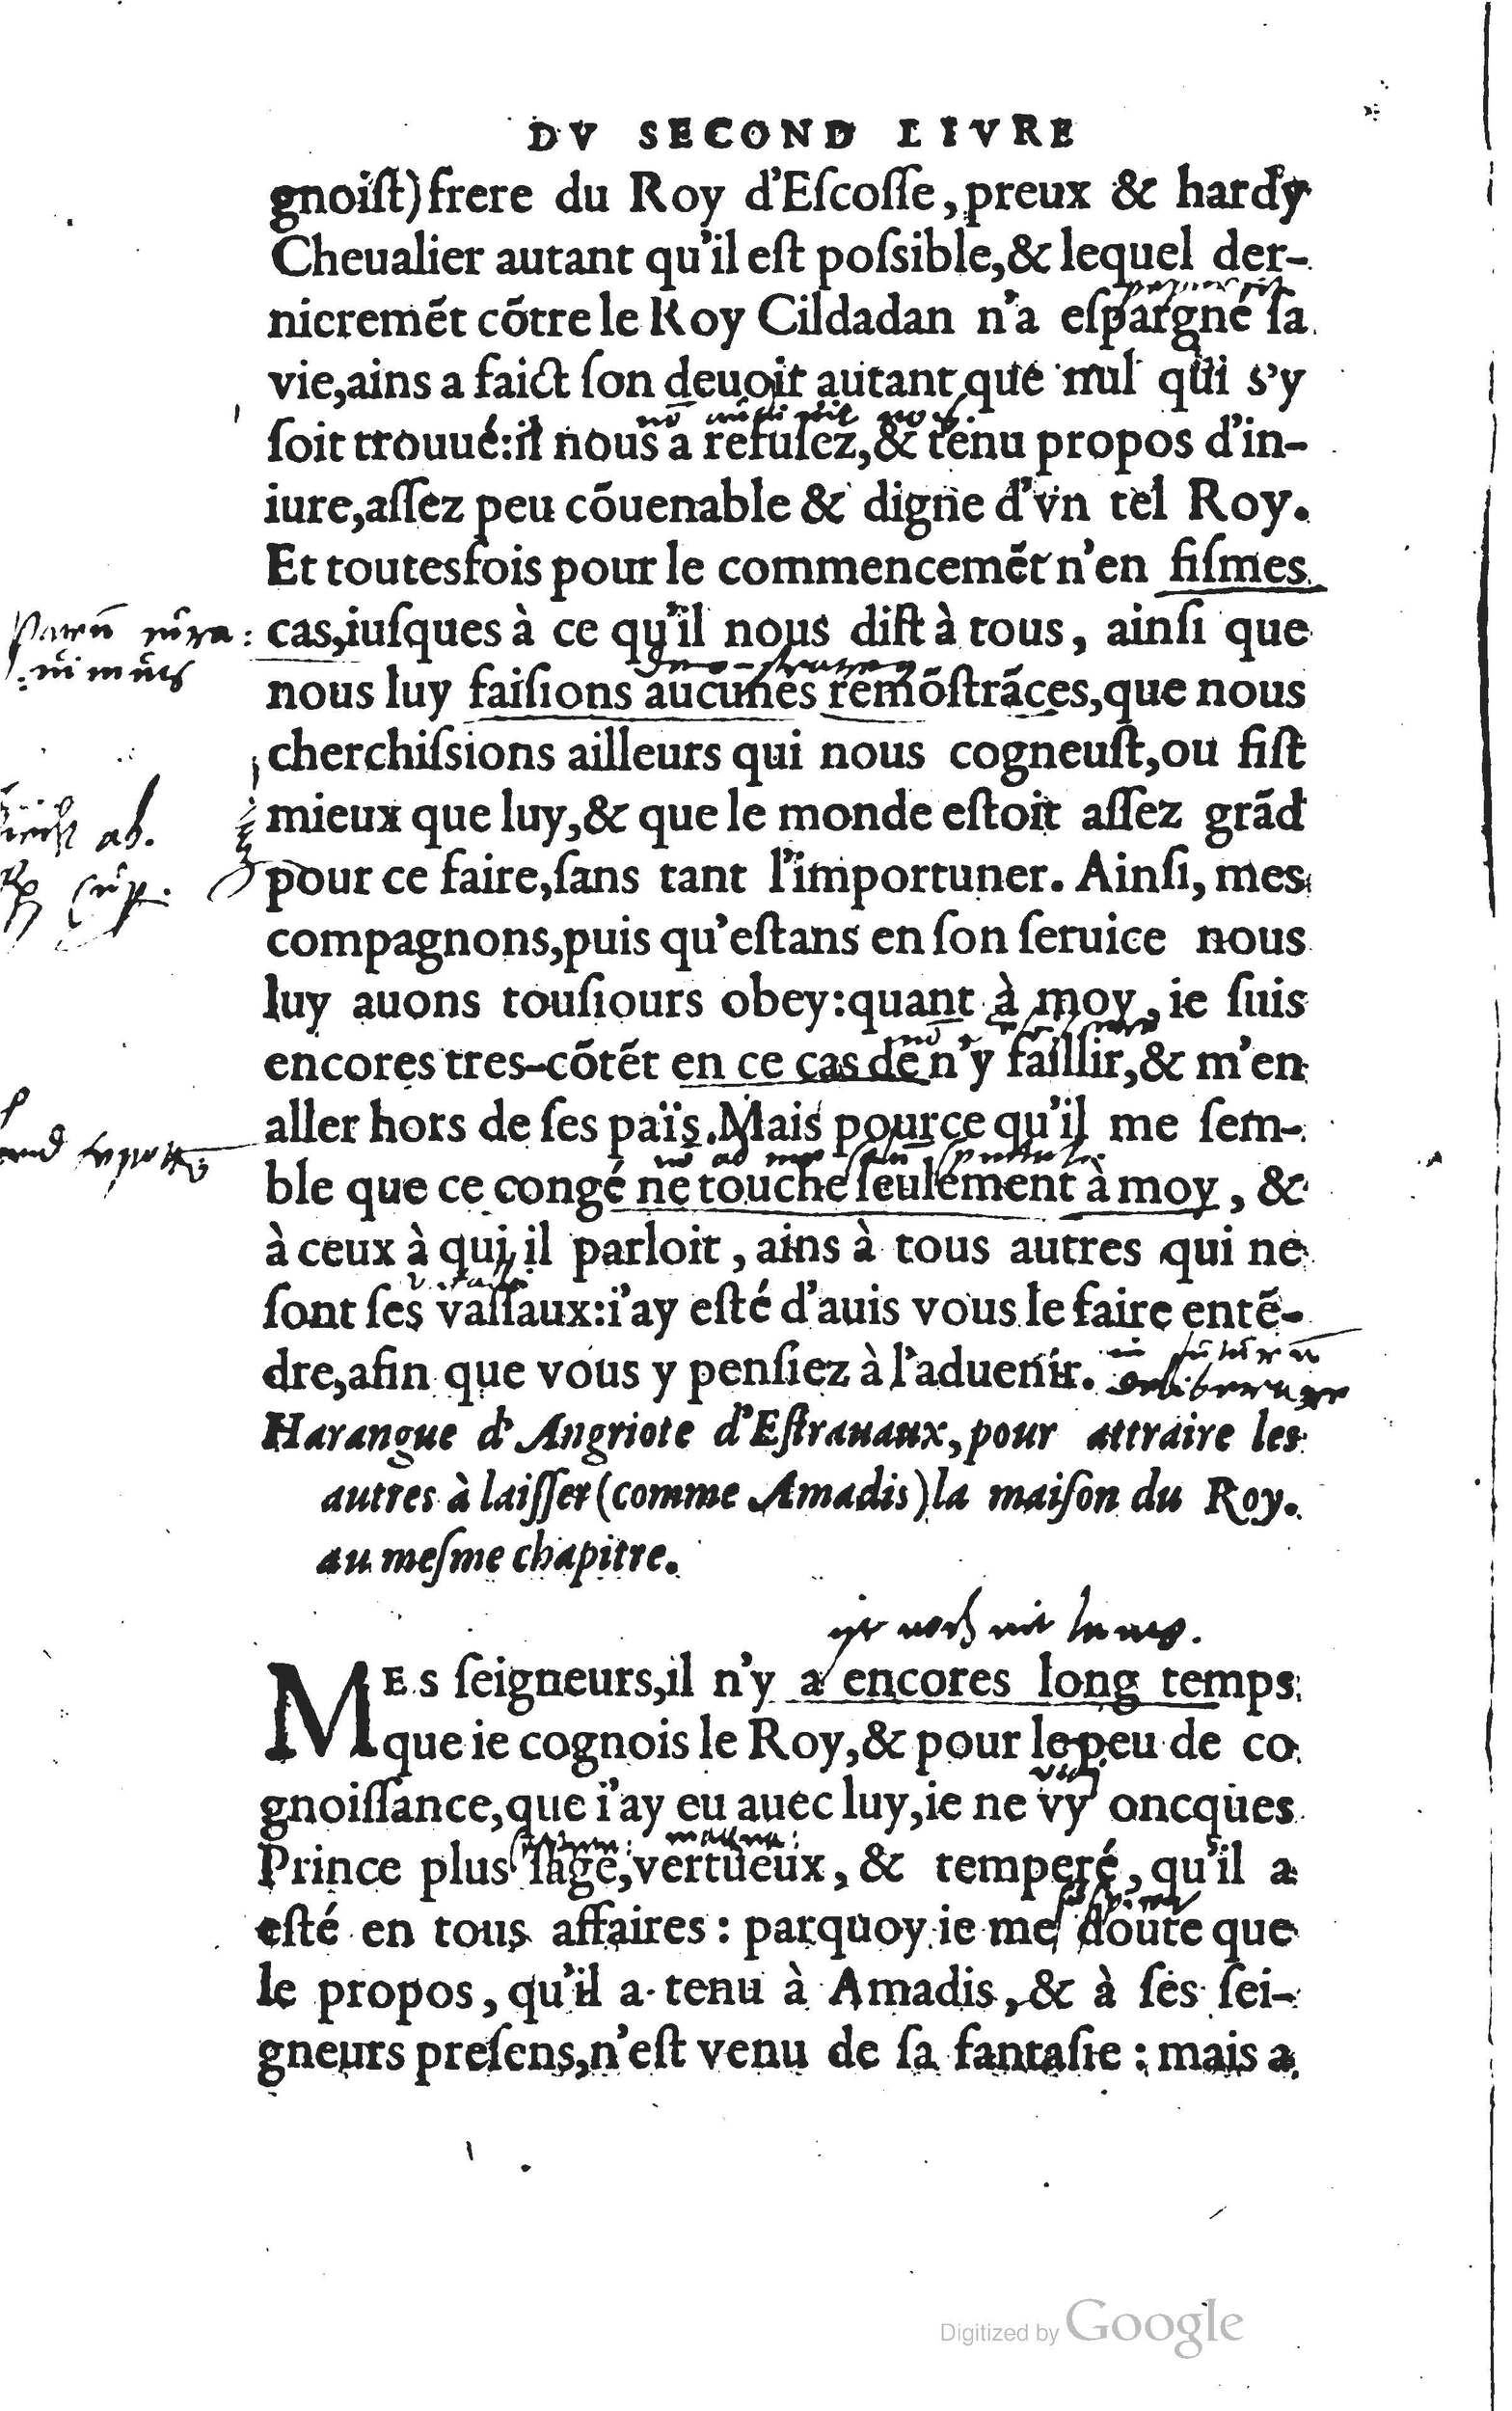 DV SECOND LIVRE
gnoiſt)frere du Roy d'Eſcoſſe, preux & hardy
Cheualier autant qu'il eſt poſsible,& lequel der-
nieremẽt cõtre le Roy Cildadan n'a eſpargné ſa
vie,ains a faict ſon deuoir autant que nul qui s'y
ſoit trouué:il nous a refuſez,& tenu propos d'in-
iure,aſſez peu cõuenable & digne d'vn tel Roy.
Et toutesfois pour le commencemẽt n'en fiſmes
cas,iuſques à ce qu'il nous diſt à tous, ainſi que
nous luy faiſions aucunes remõſtrãces,que nous
cherchiſsions ailleurs qui nous cogneuſt,ou fiſt
mieux que luy,& que le monde eſtoit aſſez grãd
ab.
pour ce faire,ſans tant l'importuner. Ainſi, mes
compagnons,puis qu'eſtans en ſon ſeruice nous
luy auons touſiours obey:quant à moy, ie ſuis
encores tres-cõtẽt en ce cas de n'y faillir,& m'en
aller hors de ſes païs. Mais pource qu'il me ſem-
ble que ce congé ne touche ſeulement à moy, &
à ceux à qui il parloit, ains à tous autres qui ne
ſont ſes vaſſaux:i'ay eſté d'auis vous le faire entẽ-
dre,afin que vous y penſiez à l'aduenir.
Harangue d'Angriote d'Eſtrauaux, pour attraire les
autres à laiſſer (comme Amadis) la maiſon du Roy.
au meſme chapitre.
MES ſeigneurs,il n'y a encores long temps
que ie cognois le Roy,& pour le peu de co
gnoiſſance,que i'ay eu auec luy,ie ne vy oncques
Prince plus ſage,vertueux, & temperé, qu'il a
eſté en tous affaires : parquoy ie me doute que
le propos, qu'il a tenu à Amadis, & à ſes ſei-
gneurs preſens,n'eſt venu de ſa fantaſie : mais a
Digitized by Google